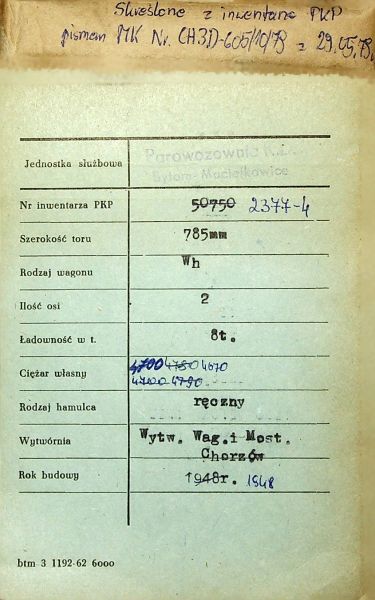 Skreślone z inwentarza PKP
pismem MK Nr. CH3D-605/10/79 z 29.05.79.
Jednostka służbowa Parowozownia
Bytom-Maciejkowice
Nr inwentarza PKP 50750 2377-4
Szerokość toru 785mm
Rodzaj wagonu Wh
Ilość osi 2
Ładowność w t. 8t.
Ciężar własny 4700 4750 4670
4700 4790
Rodzaj hamulca ręczny
Wytwórnia Wytw. Wag. i Most.
Chorzów
Rok budowy 1948r. 1948
btm 3 1192-62 6000